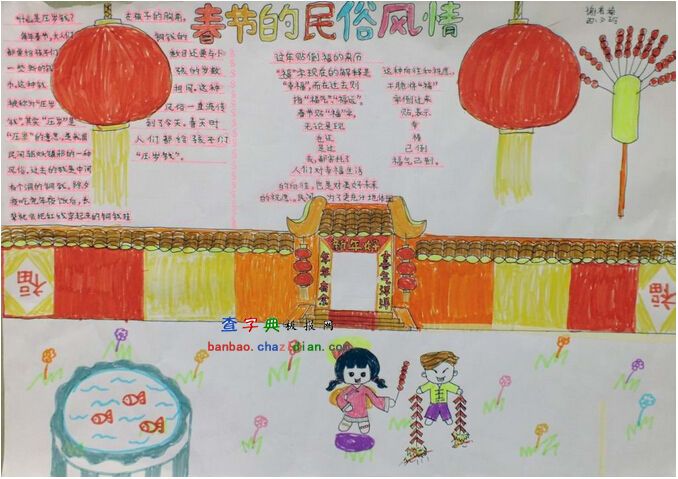 春节的民俗风情
什么是压岁钱?
每年春节,大人们
都要给孩子们
一些新的钱
币,这种钱
被称为“压岁
钱”。其实“压岁”是
“压祟”的意思,是我国
民间驱妖镇邪的一种
风俗。过去的钱是中间
有个洞的铜钱。除夕
夜吃完年夜饭后,长
辈就会把红线穿起来的铜钱挂
在孩子的胸前,
铜钱的
数目还要与小
孩的岁数
相同。这种
风俗一直流传
到了今天。春天时
人们都给孩子们
“压岁钱”。
过年贴倒福的来历
“福”字现在的解释是
“幸福”,而在过去则
指“福气”、“福运”。
春节贴“福”字,
无论是现
在还
是过
去,都寄托了
人们对幸福生活
的向往,也是对美好未来
的祝愿。民间为了充分地体现
这种向往和祝愿,
干脆将“福”
字倒过来
贴,表示
幸
福
已倒
福气已到。
福
新年好
年年有余
喜气洋洋
福
查字典板报网
banbao.chazidian.com